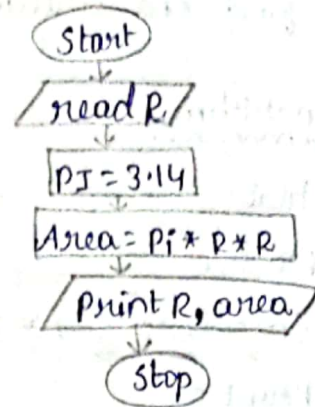 Start
read R
PI = 3.14
Area = Pi * R * R
Print R, area
Stop